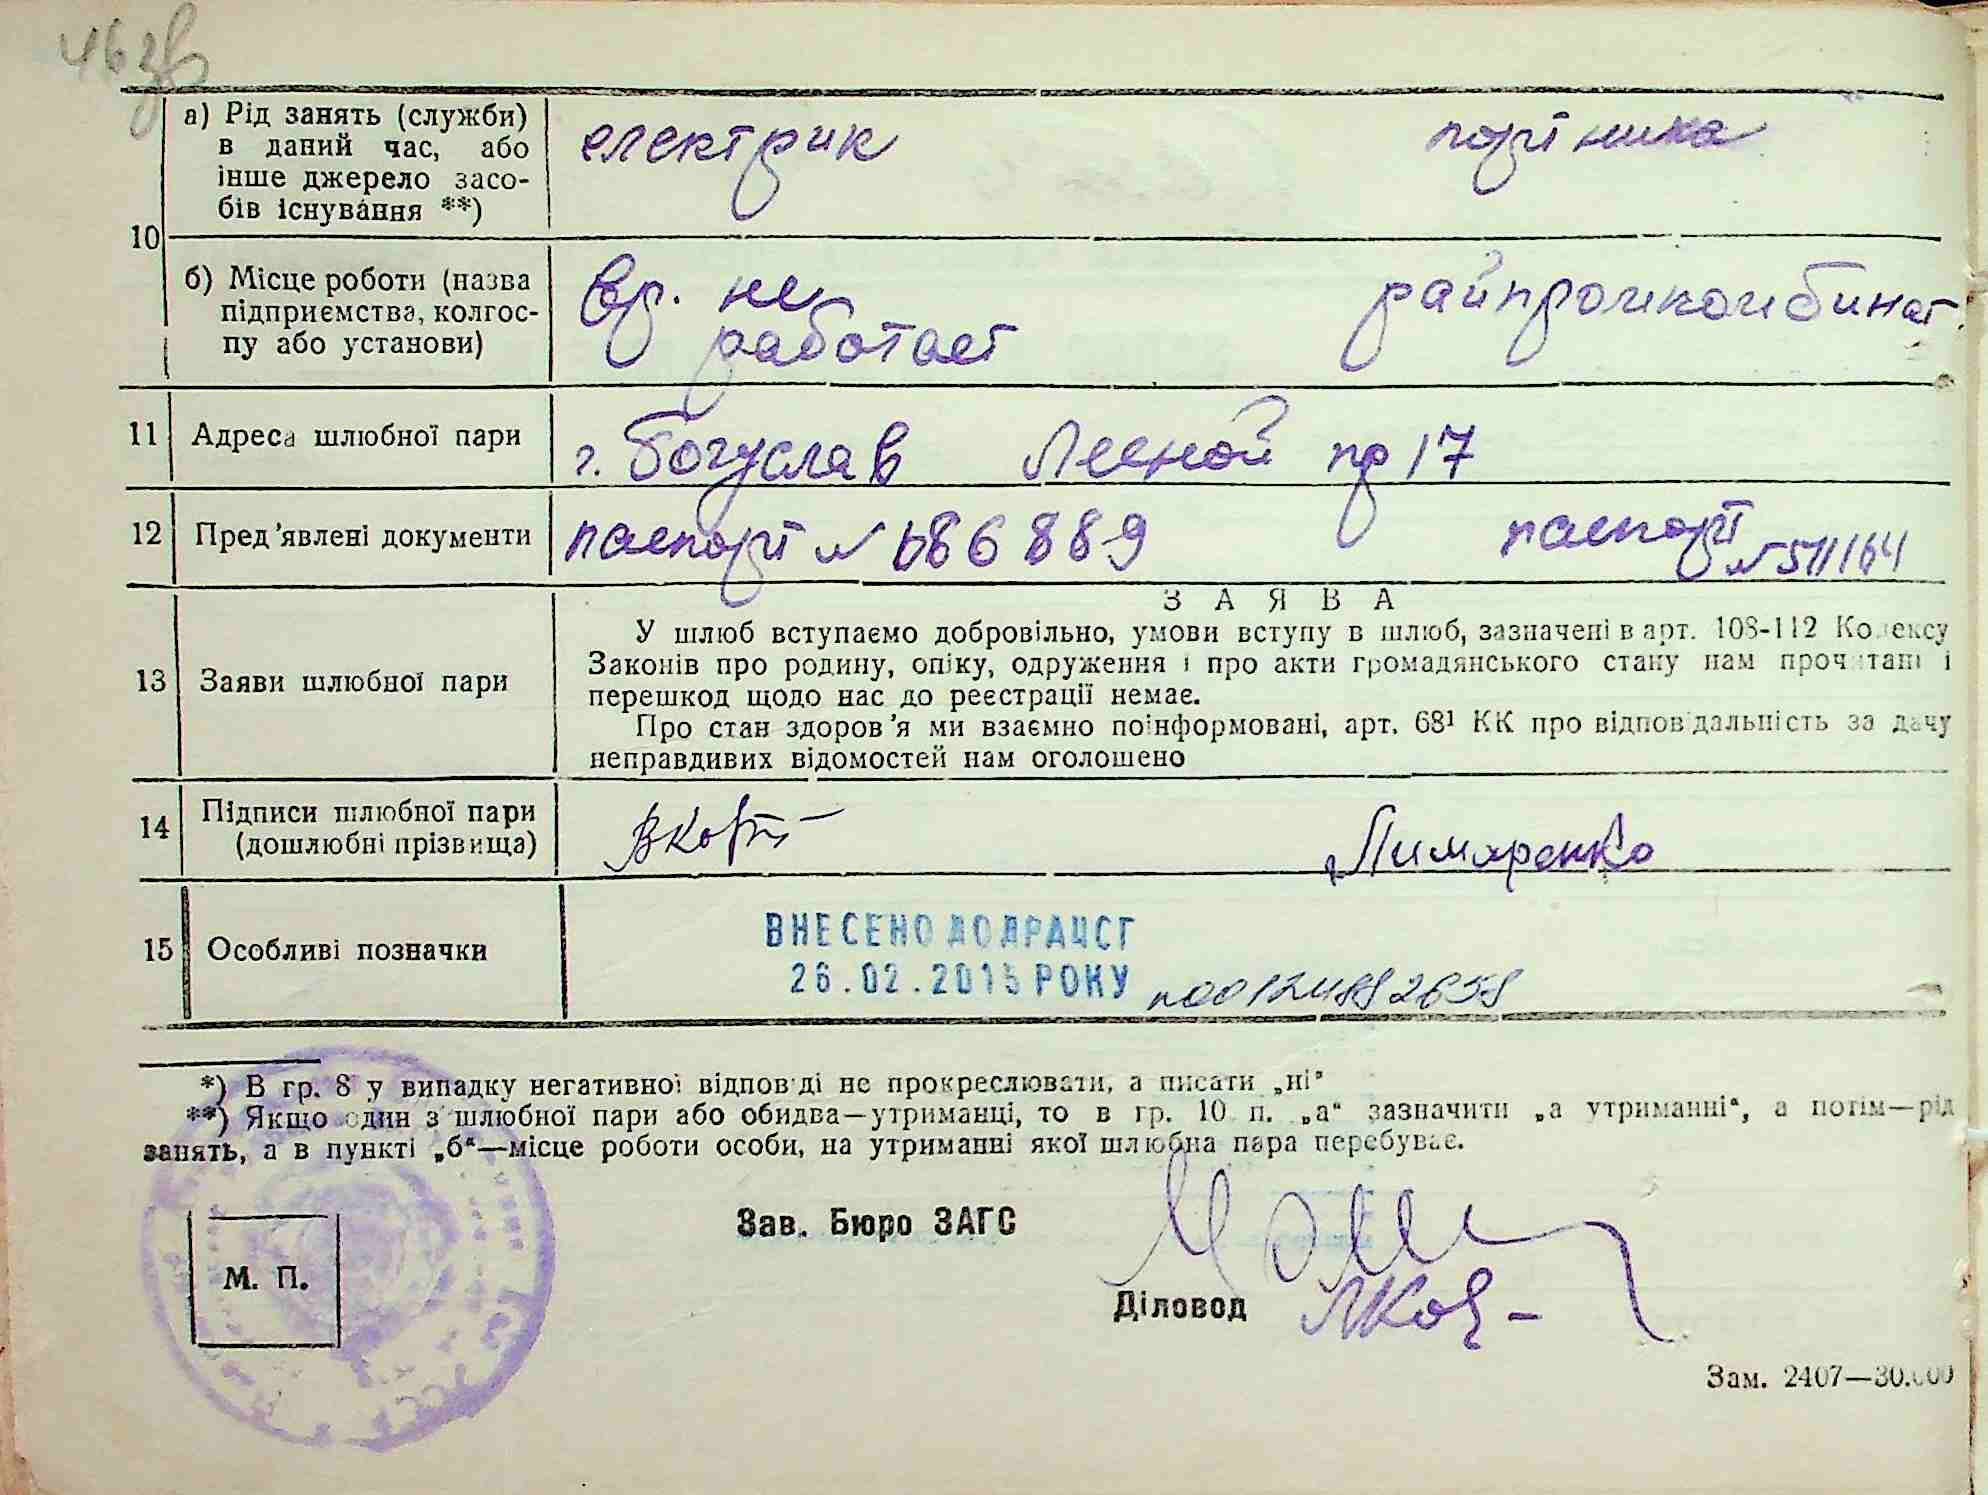 46 зв
10
а) Рід занять (служби)
в даний час, або
інше джерело засо-
бів існування **)
електрик
портниха
б) Місце роботи (назва
підприємства, колгос-
пу або установи)
вр. не
работает
райпромкомбинат
11
Адреса шлюбної пари
г. Богуслав Лесной пр 17
12
Пред'явлені документи
паспорт № 686889
паспорт
№ 511164
13
Заяви шлюбної пари
ЗАЯВА
У шлюб вступаємо добровільно, умови вступу в шлюб, зазначені в арт. 108-112 Кодексу
Законів про родину, опіку, одруження і про акти громадянського стану нам прочитані і
перешкод щодо нас до реєстрації немає.
Про стан здоров'я ми взаємно поінформовані, арт. 68¹ КК про відповідальність за дачу
неправдивих відомостей нам оголошено
14
Підписи шлюбної пари
(дошлюбні прізвища)
Пимаренко
15
Особливі позначки
ВНЕСЕНО ДО ДРАЦСГ
26.02.2015 РОКУ
*) В гр. 8 у випадку негативної відповіді не прокреслювати, а писати „ні"
**) Якщо один з шлюбної пари або обидва—утриманці, то в гр. 10 п. „а" зазначити „а утриманні", а потім—рід
занять, а в пункті „б"—місце роботи особи, на утриманні якої шлюбна пара перебуває.
М. П.
Зав. Бюро ЗАГС
Діловод
Зам. 2407—30.000